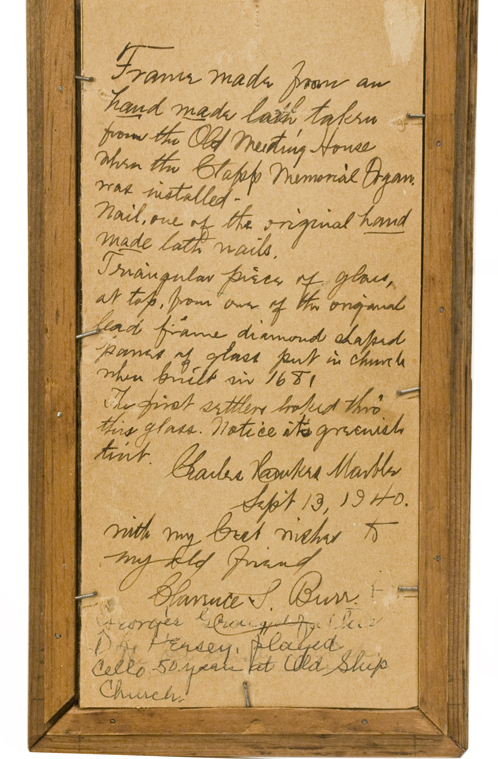 Frame made from an
hand made lath taken
from the Old Meeting House
when the Clapp Memorial Organ
was installed-
Nail, one of the original hand
made lath nails.
Triangular piece of glass,
at top, from one of the original
lead frame diamond shaped
panes of glass put in church
when built in 1681
The first settlers looked thro
this glass. Notice its greenish
tint.
Charles Marble
Sept 13, 1940.
with my best wishes to
my old friend
Clarence S. Burr.
Hersey, played
cello 50 years at Old Ship
Church.